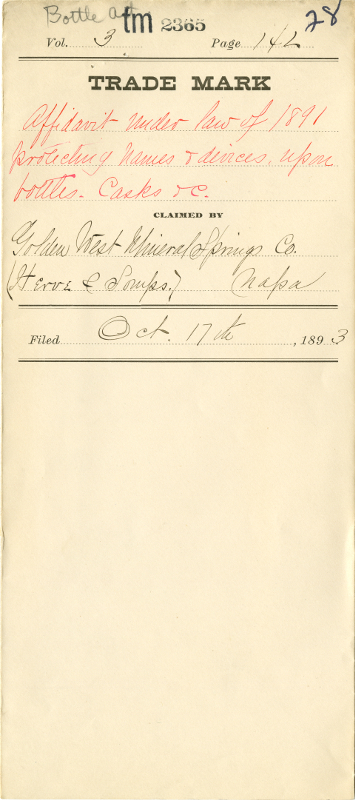 Bottle Act tm 2365 28
Vol. 3 Page 142
TRADE MARK
Affidavit under law of 1891
protecting names & devices, upon
bottles. Casks &c.
CLAIMED BY
Golden West Mineral Springs Co.
(Herve & Somps.) Napa
Filed Oct. 17th, 1893